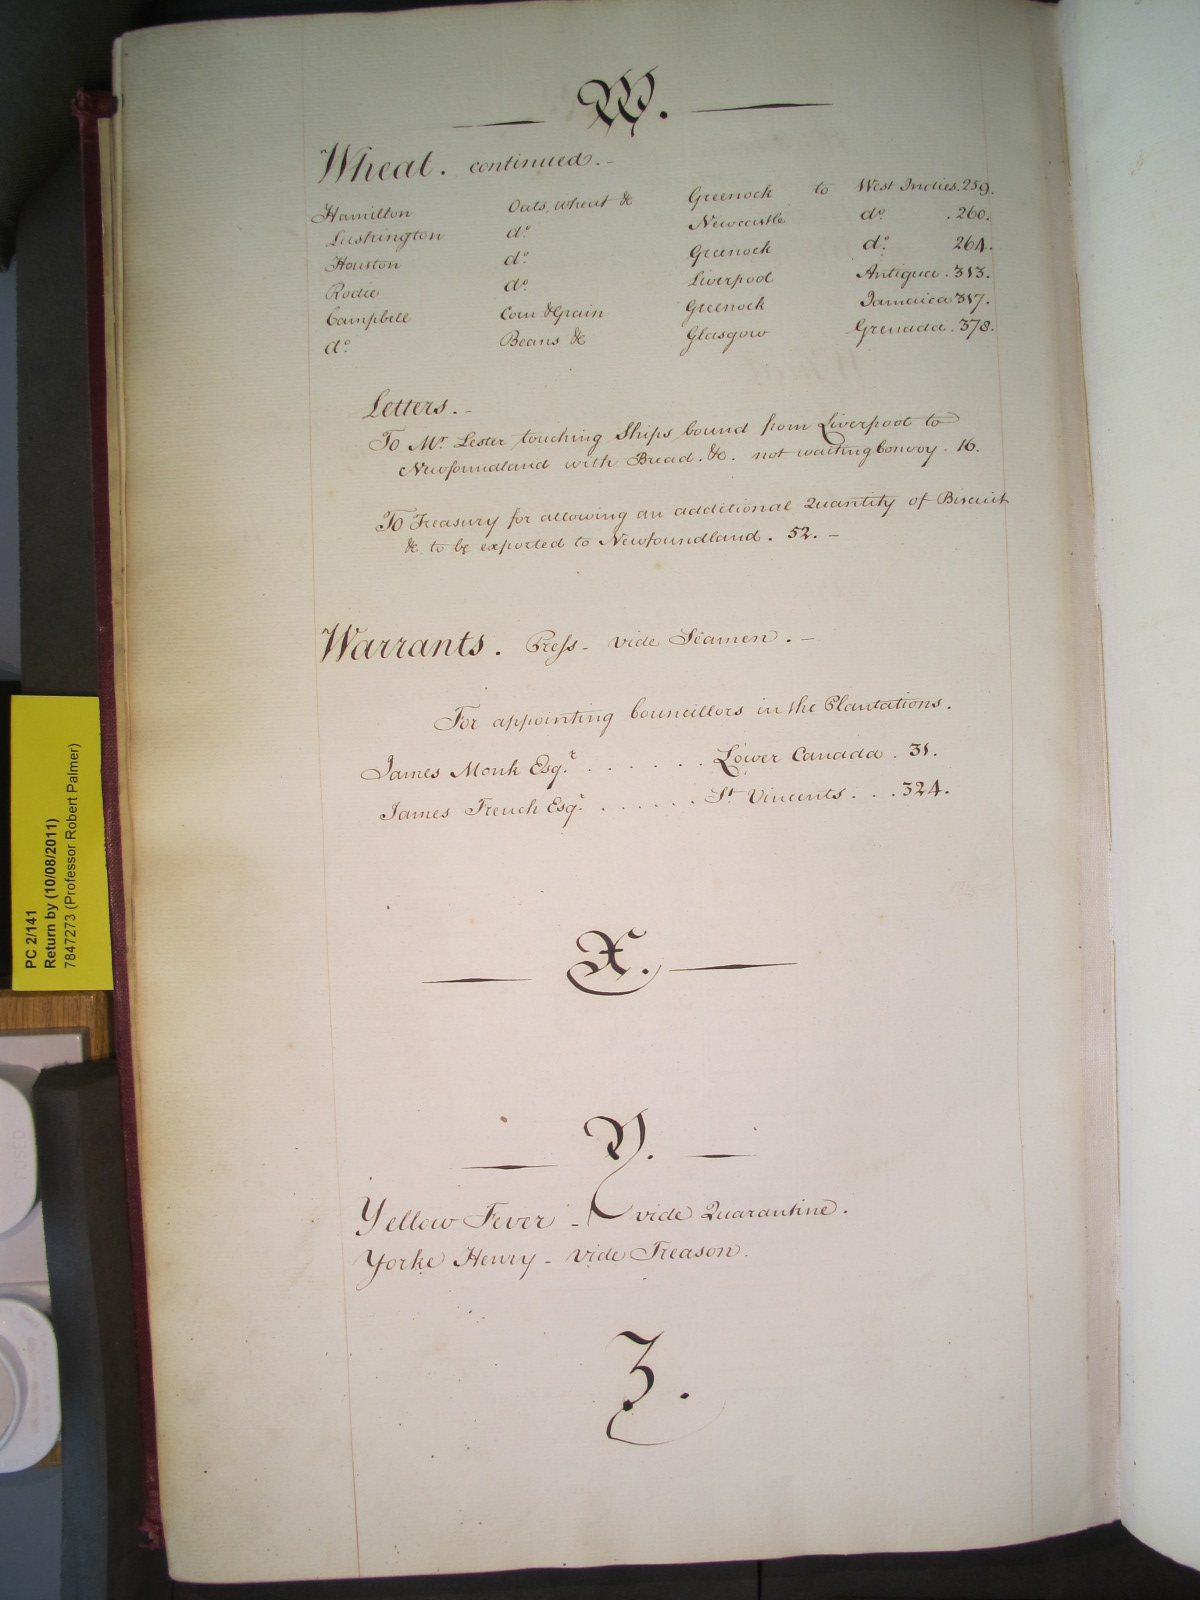 W.
Wheat. continued.-
Hamilton Oats, Wheat &c Greenock to West Indies. 259.
Lushington do. Newcastle do. .260.
Houston do. Greenock do. 264.
Rodie do. Liverpool Antigua. 313.
Campbell Corn & Grain Greenock Jamaica 317.
do. Beans &c Glasgow Grenada. 378.
Letters.-
To Mr. Lester touching Ships bound from Liverpool to
Newfoundland with Bread. &c. not waiting Convoy. 16.
To Treasury for allowing an additional Quantity of Biscuit
&c to be exported to Newfoundland. 52.-
Warrants. Press- vide Seamen.-
For appointing Councillors in the Plantations.
James Monk Esqr. . . . . . . Lower Canada . 31.
James French Esqr. . . . . . . St. Vincents. . . 324.
X.
Y.
Yellow Fever - vide Quarantine.
Yorke Henry - vide Treason.
Z.
PC 2/141
Return by (10/08/2011)
7847273 (Professor Robert Palmer)